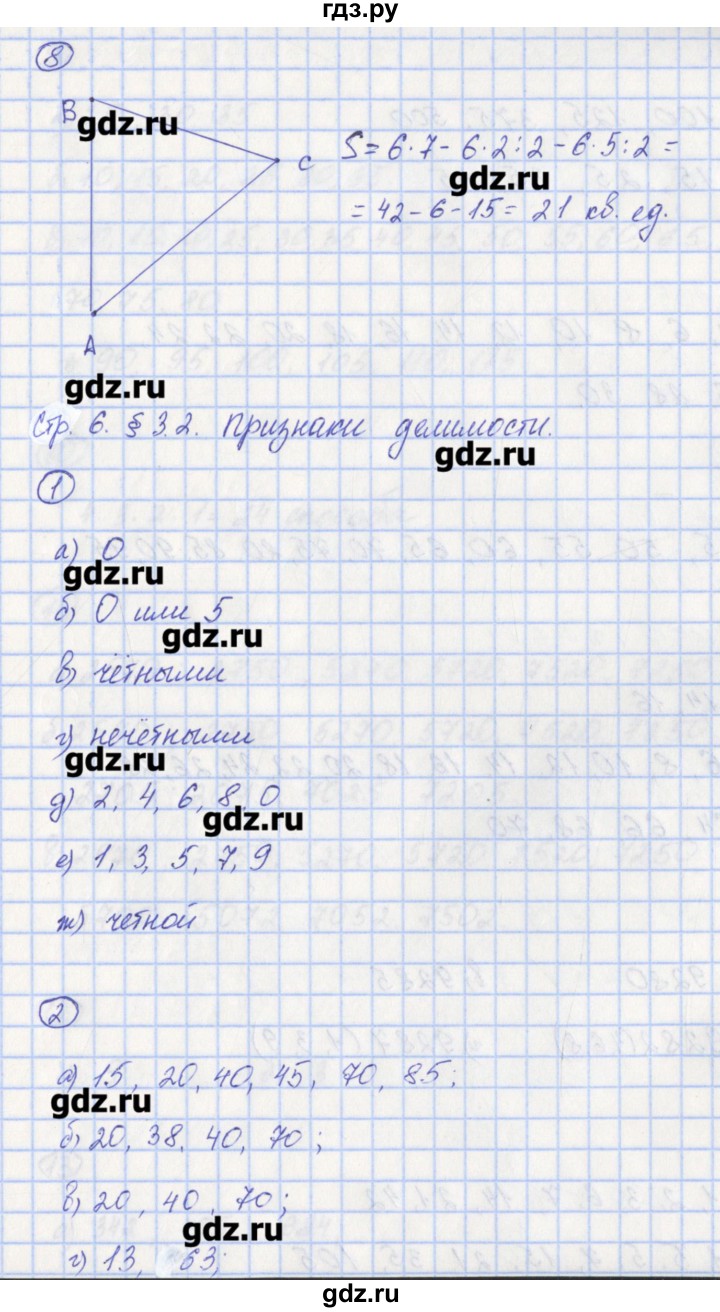 гдз.ру
8
B
gdz.ru
C
S = 6·7 - 6·2:2 - 6·5:2 =
gdz.ru
= 42 - 6 - 15 = 21 кв. ед.
A
gdz.ru
Стр. 6. § 3.2. Признаки делимости.
gdz.ru
1
а) 0
gdz.ru
б) 0 или 5
gdz.ru
в) чётными
г) нечётными
gdz.ru
д) 2, 4, 6, 8, 0
gdz.ru
е) 1, 3, 5, 7, 9
ж) четной
2
а) 15, 20, 40, 45, 70, 85;
gdz.ru
б) 20, 38, 40, 70;
в) 20, 40, 70;
gdz.ru
г) 13, 63;
gdz.ru